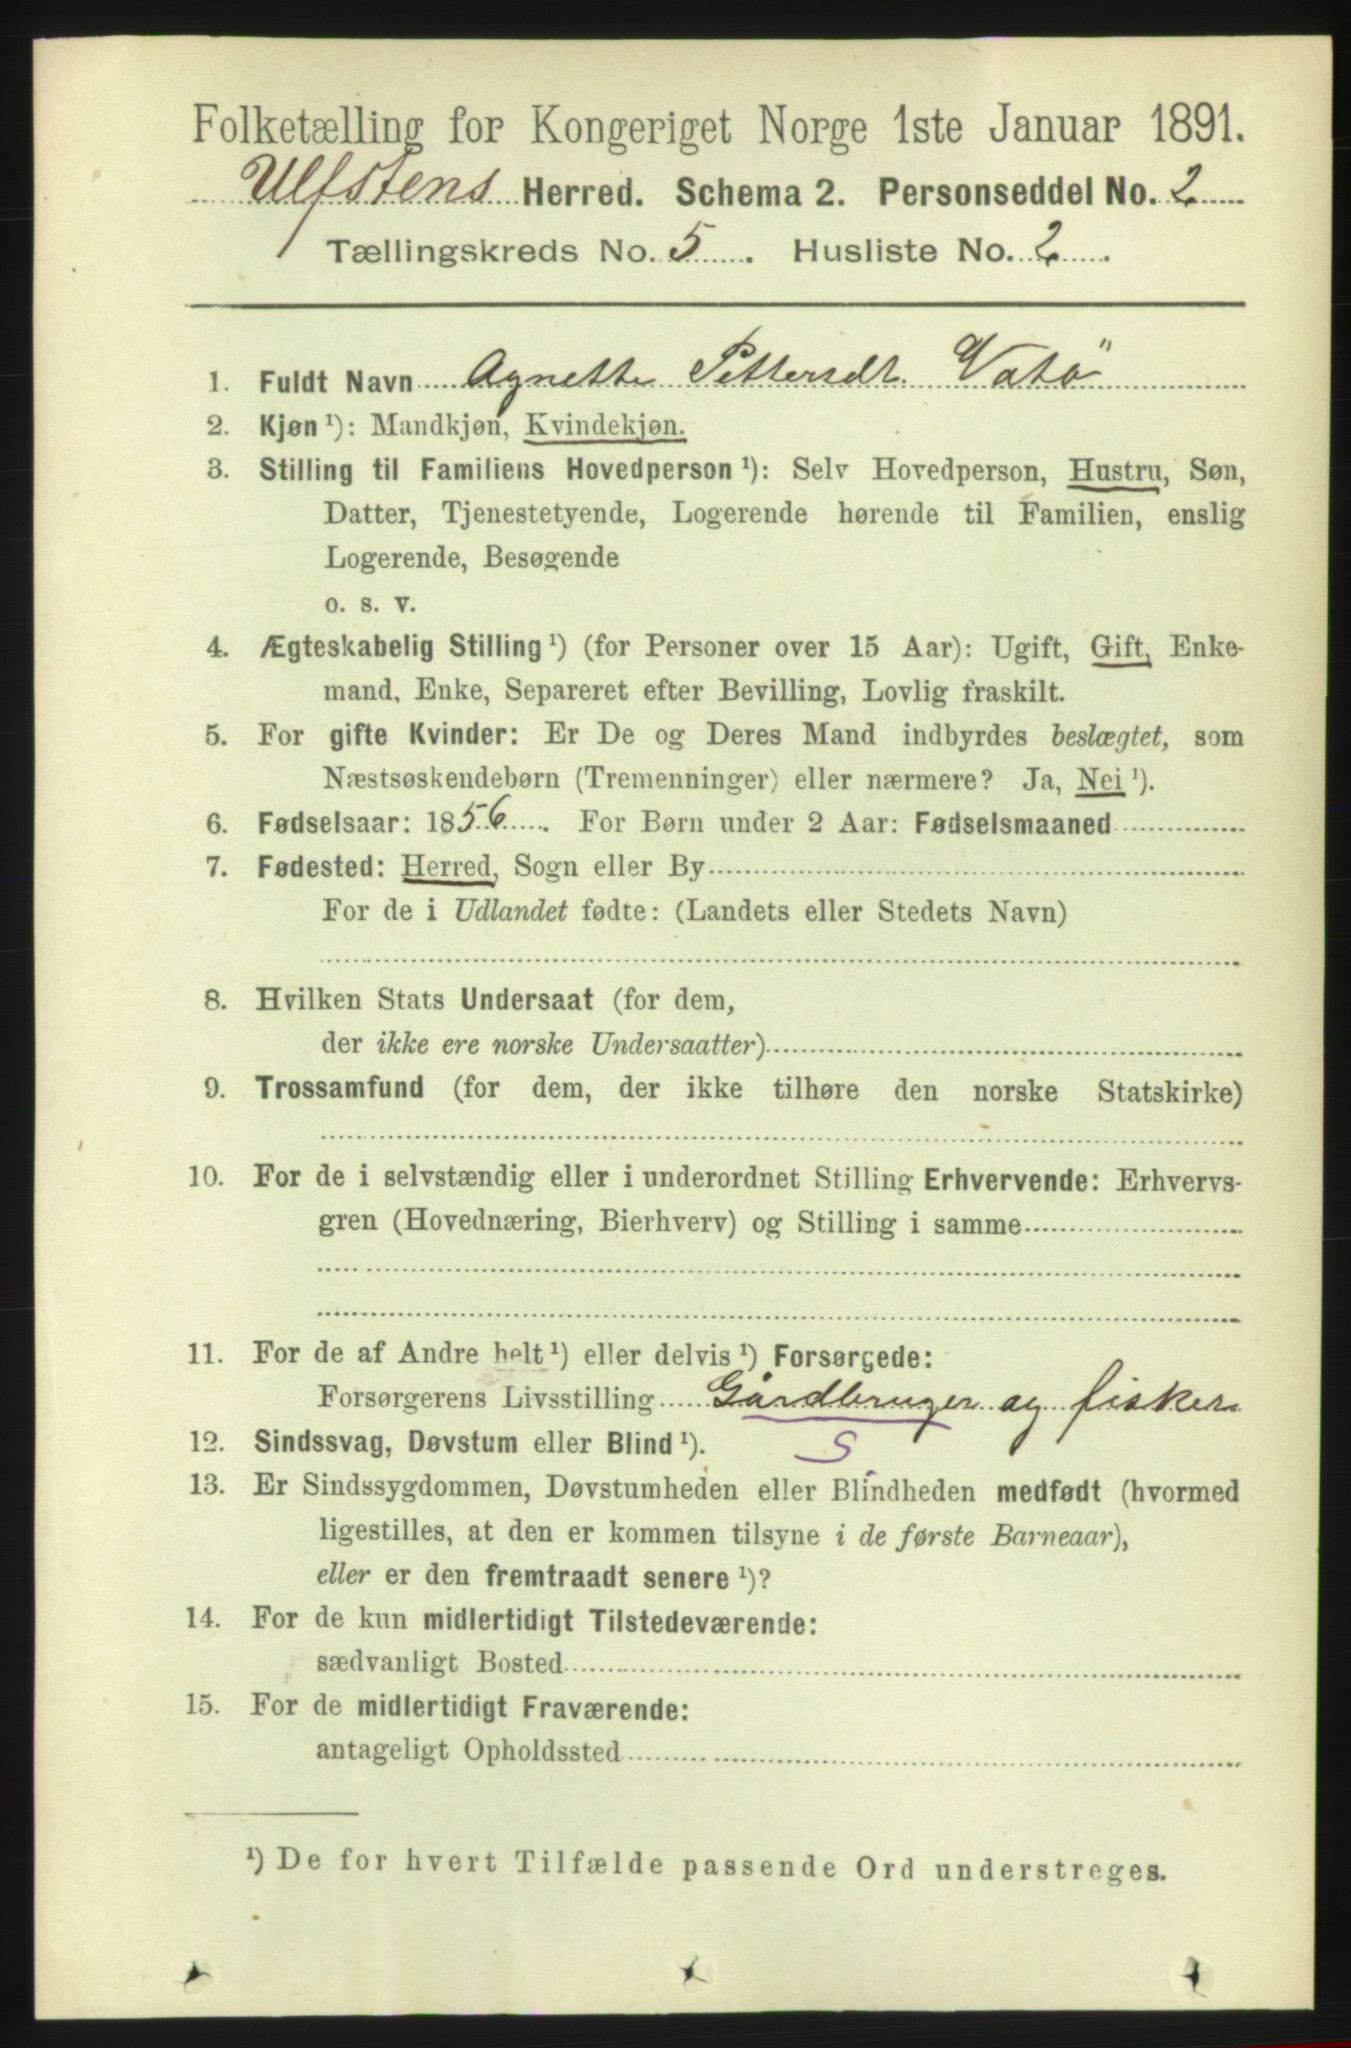 Folketælling for Kongeriget Norge 1ste Januar 1891.
Ulfstens Herred. Schema 2. Personseddel No. 2
Tællingskreds No. 5. Husliste No. 2.
1. Fuldt Navn Agnette Pettersdt. Vatö
2. Kjøn ¹): Mandkjøn, Kvindekjøn.
3. Stilling til Familiens Hovedperson ¹): Selv Hovedperson, Hustru, Søn,
Datter, Tjenestetyende, Logerende hørende til Familien, enslig
Logerende, Besøgende
o. s. v.
4. Ægteskabelig Stilling ¹) (for Personer over 15 Aar): Ugift, Gift, Enke-
mand, Enke, Separeret efter Bevilling, Lovlig fraskilt.
5. For gifte Kvinder: Er De og Deres Mand indbyrdes beslægtet, som
Næstsøskendebørn (Tremenninger) eller nærmere? Ja, Nei ¹).
6. Fødselsaar: 1856. For Børn under 2 Aar: Fødselsmaaned
7. Fødested: Herred, Sogn eller By
For de i Udlandet fødte: (Landets eller Stedets Navn)
8. Hvilken Stats Undersaat (for dem,
der ikke ere norske Undersaatter)
9. Trossamfund (for dem, der ikke tilhøre den norske Statskirke)
10. For de i selvstændig eller i underordnet Stilling Erhvervende: Erhvervs-
gren (Hovednæring, Bierhverv) og Stilling i samme
11. For de af Andre helt ¹) eller delvis ¹) Forsørgede:
Forsørgerens Livsstilling Gårdbruger og fisker
12. Sindssvag, Døvstum eller Blind ¹). S
13. Er Sindssygdommen, Døvstumheden eller Blindheden medfødt (hvormed
ligestilles, at den er kommen tilsyne i de første Barneaar),
eller er den fremtraadt senere ¹)?
14. For de kun midlertidigt Tilstedeværende:
sædvanligt Bosted
15. For de midlertidigt Fraværende:
antageligt Opholdssted
¹) De for hvert Tilfælde passende Ord understreges.